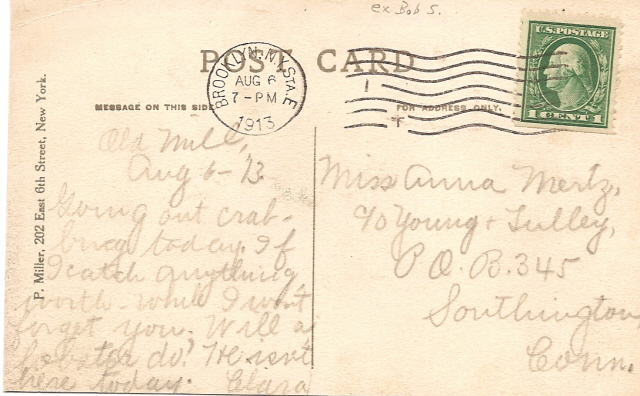 ex Bob S.
POST CARD
U.S. POSTAGE
1 CENT 1
BROOKLYN, N.Y. STA. E
AUG 6
7-PM
1913
MESSAGE ON THIS SIDE
FOR ADDRESS ONLY.
P. Miller, 202 East 6th Street, New York.
Old Mill,
Aug 6-13
Going out crab-
bing today. If
I catch anything
worth-while I won't
forget you. Will a
lobster do? He isn't
here today. Clara
Miss Anna Mertz,
c/o Young + Tulley,
P.O.B. 345
Southington
Conn.